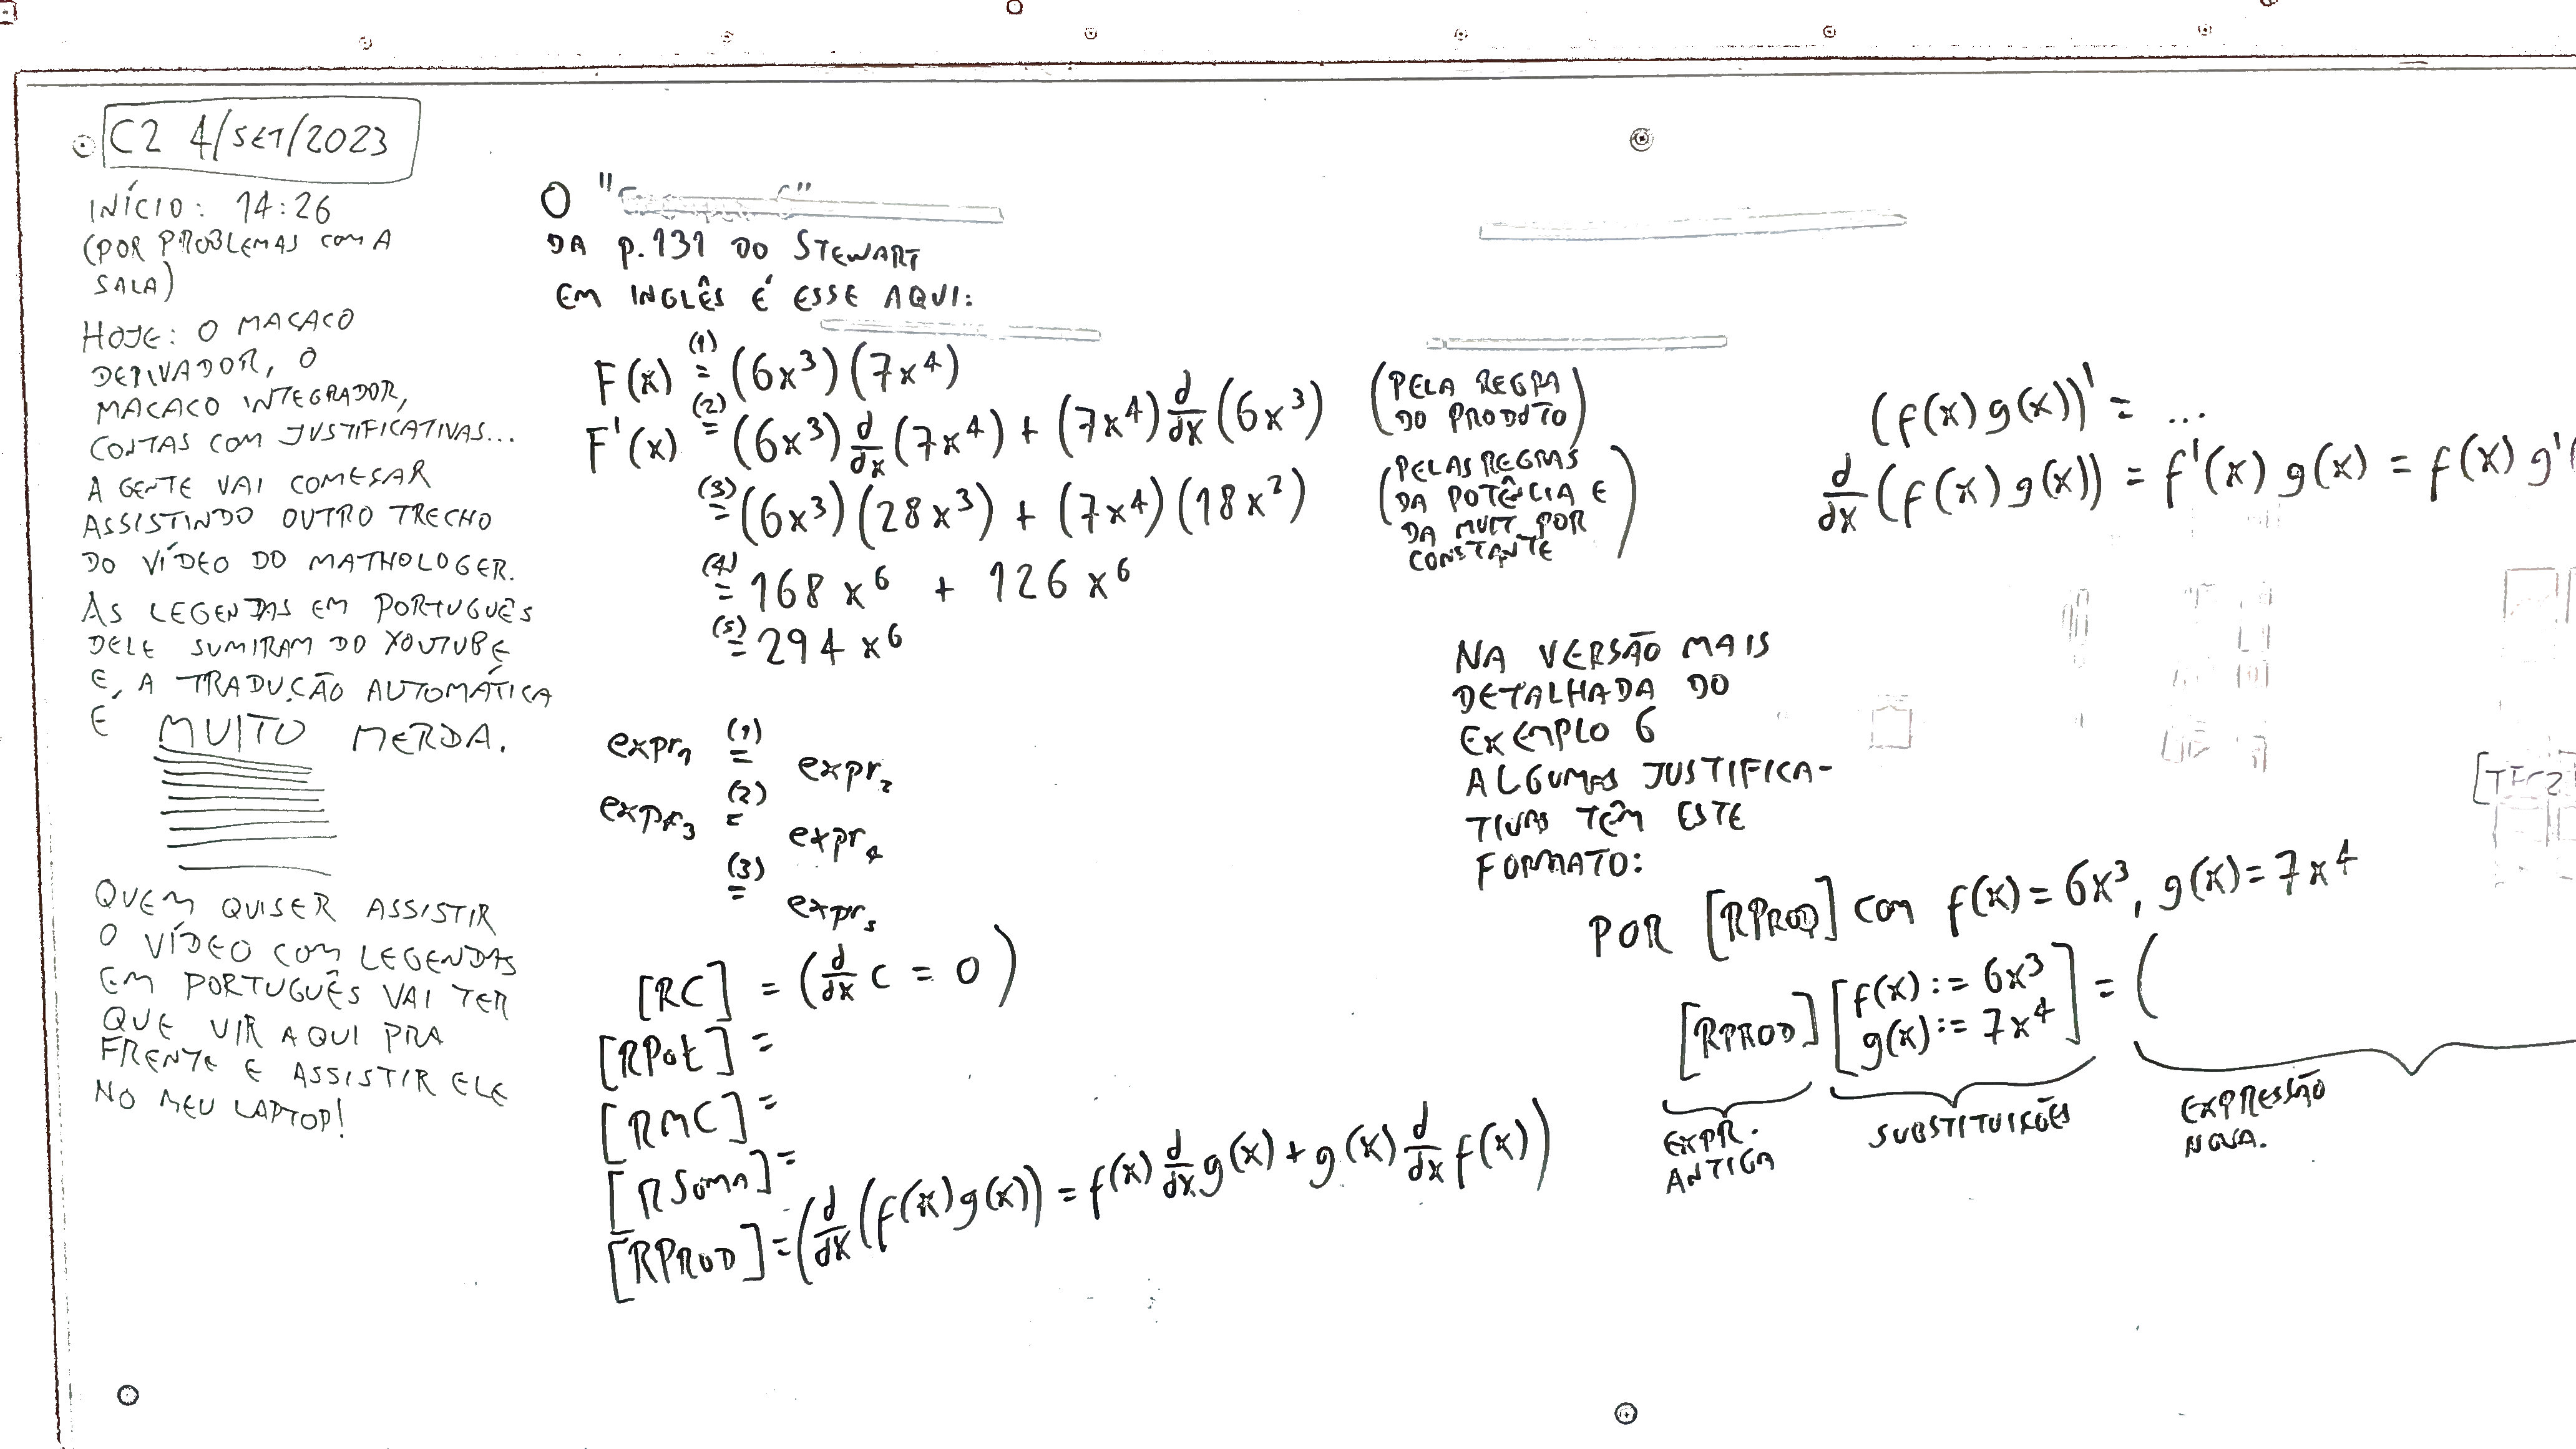 C2 4/SET/2023
INÍCIO: 14:26
(POR PROBLEMAS COM A
SALA)
HOJE: O MACACO
DERIVADOR, O
MACACO INTEGRADOR,
CONTAS COM JUSTIFICATIVAS...
A GENTE VAI COMEÇAR
ASSISTINDO OUTRO TRECHO
DO VÍDEO DO MATHOLOGER.
AS LEGENDAS EM PORTUGUÊS
DELE SUMIRAM DO YOUTUBE
E, A TRADUÇÃO AUTOMÁTICA
É MUITO MERDA.
QUEM QUISER ASSISTIR
O VÍDEO COM LEGENDAS
EM PORTUGUÊS VAI TER
QUE VIR AQUI PRA
FRENTE E ASSISTIR ELE
NO MEU LAPTOP!
O "
DA p.131 DO STEWART
EM INGLÊS É ESSE AQUI:
F(x) (1)= (6x³)(7x⁴)
F'(x) (2)= (6x³) d/dx (7x⁴) + (7x⁴) d/dx (6x³) (PELA REGRA DO PRODUTO)
(3)= (6x³)(28x³) + (7x⁴)(18x²) (PELAS REGRAS DA POTÊNCIA E DA MULT POR CONSTANTE)
(4)= 168x⁶ + 126x⁶
(5)= 294x⁶
expr₁ (1)= expr₂
expr₃ (2)= expr₄
(3)= expr₅
[RC] = (d/dx c = 0)
[RPot] =
[RMC] =
[RSoma] =
[RPROD] = (d/dx (f(x)g(x)) = f(x) d/dx g(x) + g(x) d/dx f(x))
(f(x)g(x))' = ...
d/dx (f(x)g(x)) = f'(x)g(x) = f(x)g'(
NA VERSÃO MAIS
DETALHADA DO
EXEMPLO 6
ALGUMAS JUSTIFICA-
TIVAS TÊM ESTE
FORMATO:
POR [RPROD] COM f(x) = 6x³, g(x) = 7x⁴
[RPROD] [f(x) := 6x³
g(x) := 7x⁴] = (
EXPR.
ANTIGA
SUBSTITUIÇÕES
EXPRESSÃO
NOVA.